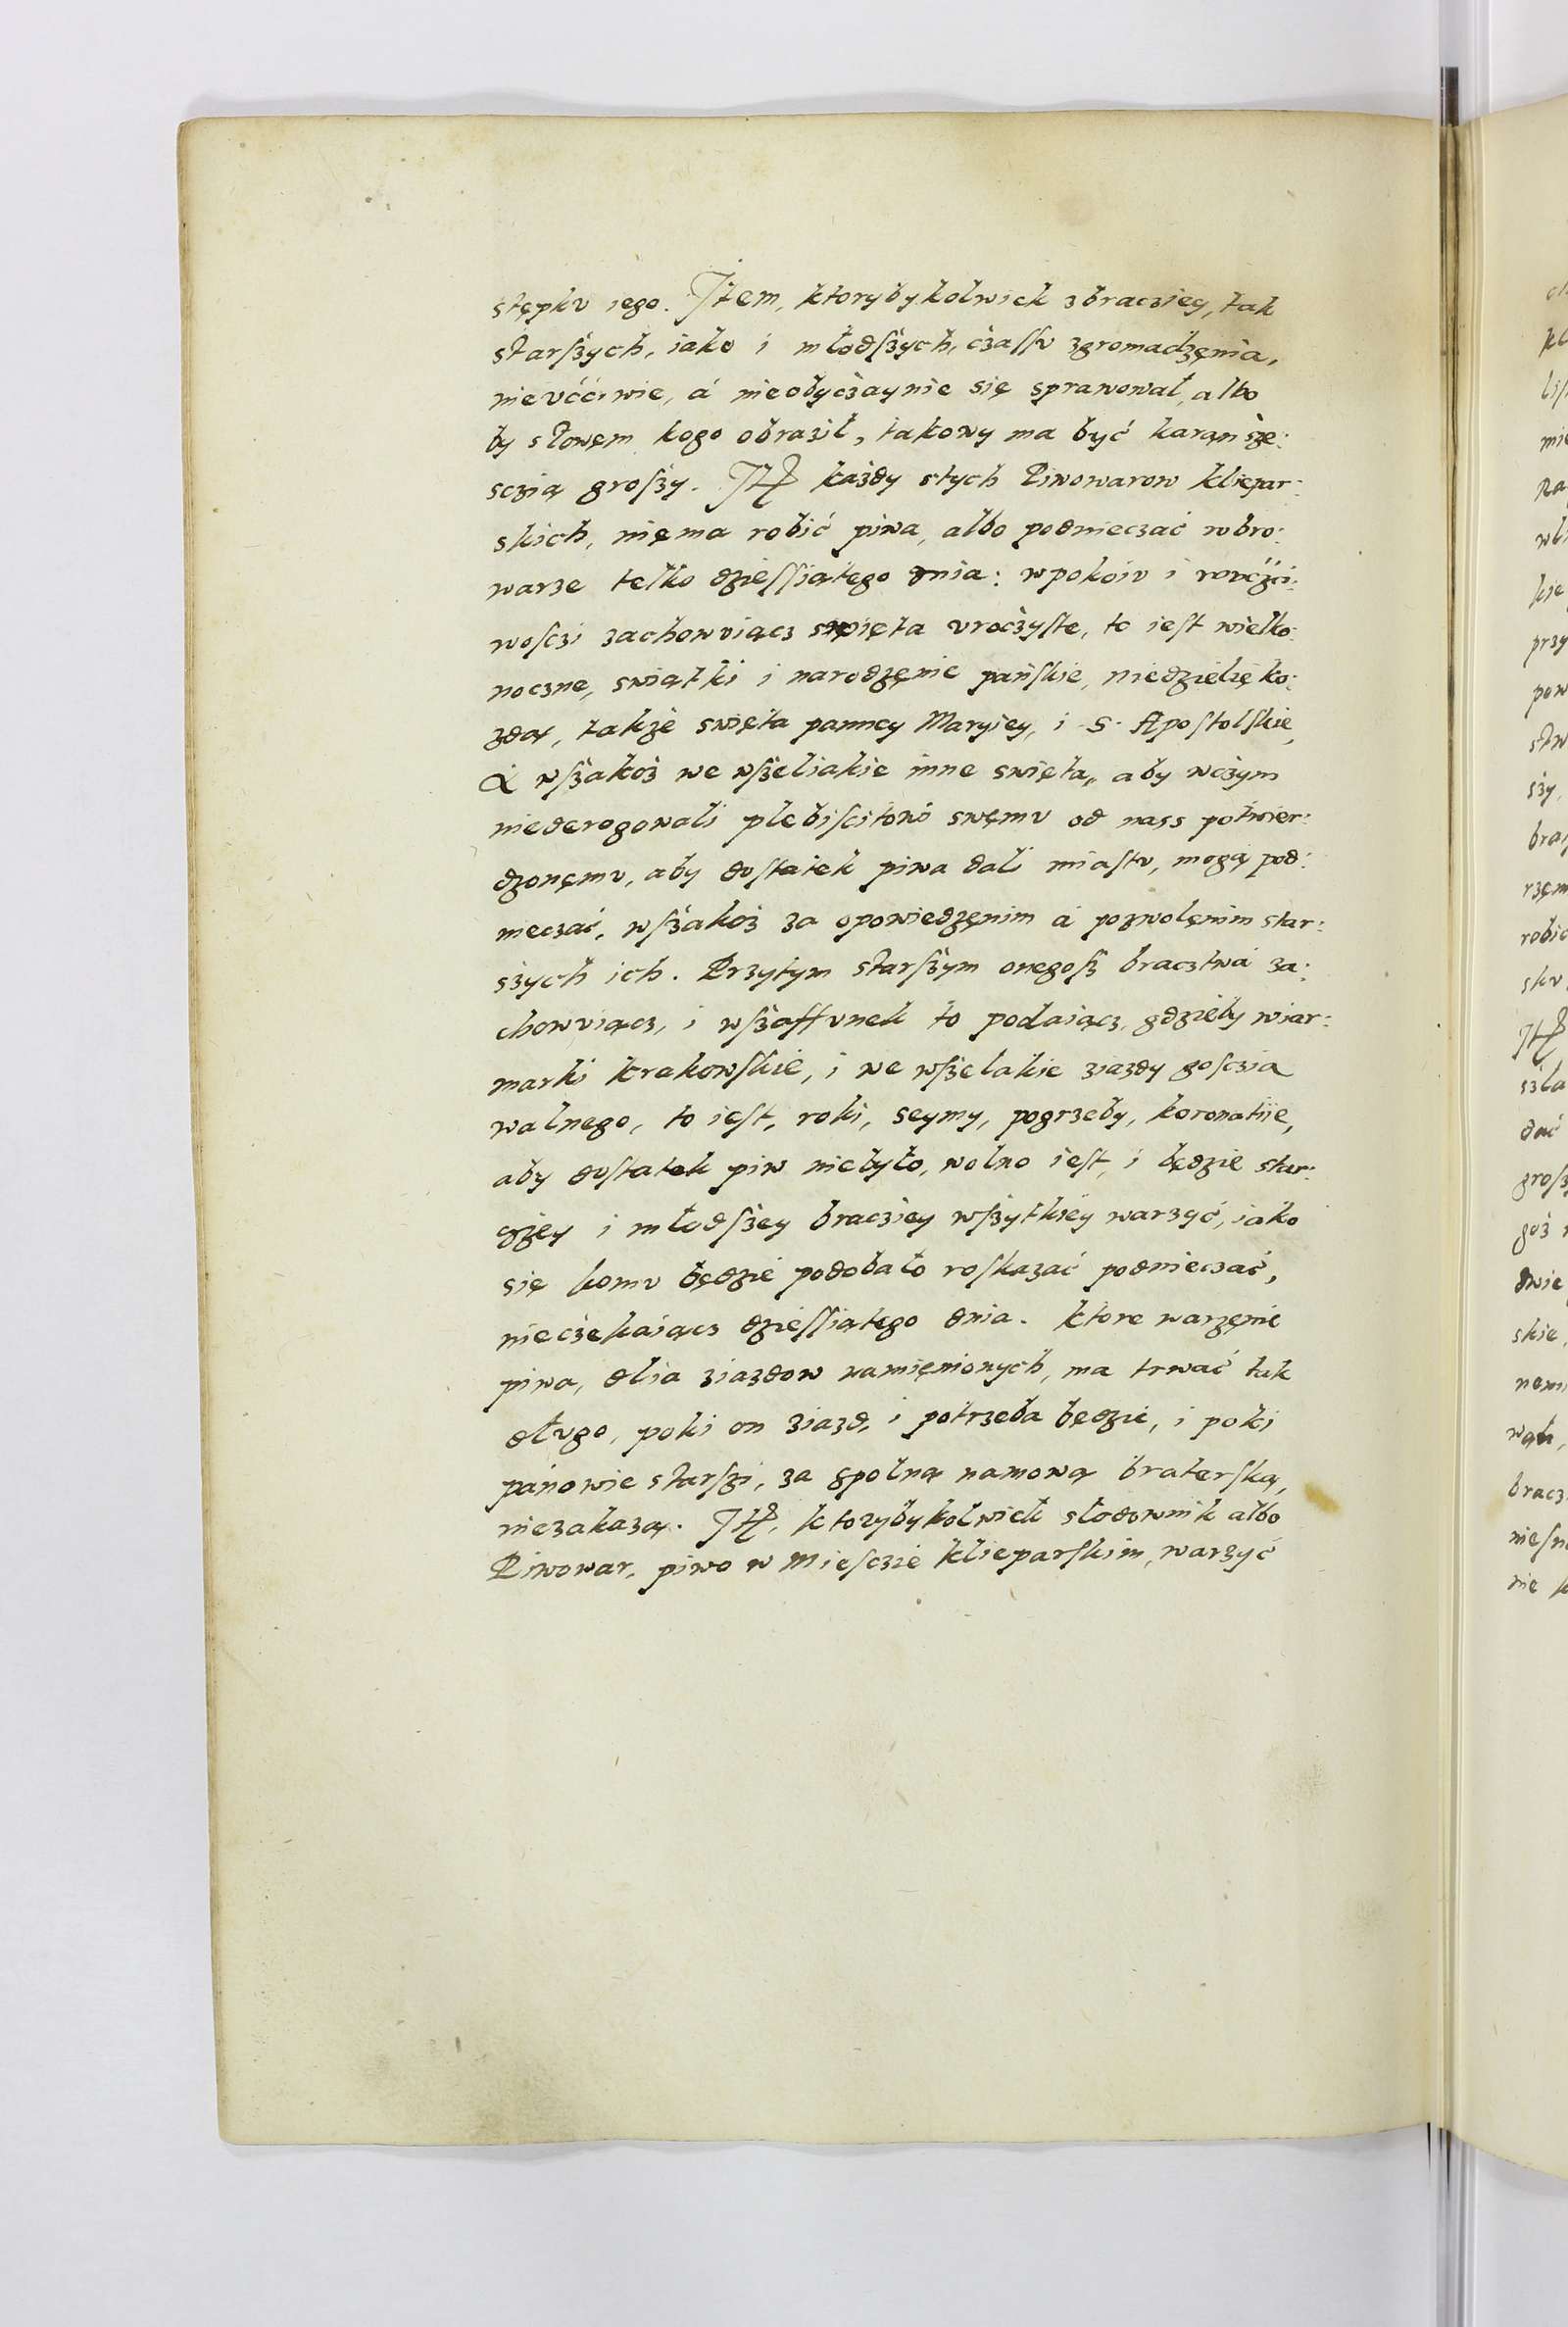 stępku iego. Item, ktorybykolwiek zbracziey, tak
starſzych, iako i młodſzych, czaſſu zgromadzęnia,
nievććiwie, á nieobyczaynie się sprawował, albo
by słowęm kogo obraził, takowy ma być karąn sze:
sczią groſzy. It. każdy stych Piwowarow kliepar:
skich, nięma robić piwa, albo podnieczać wbro:
warze telko dzieſſiątego dnia: wpokoiu i
woſczi zachowuiącz swięta vroczyſte, to ieſt wielko:
noczne, swiątki i narodzęnie pańſkie, niedzielię ko:
zdą, także swięta panney Maryiey, i S. Apoſtolſkie,
A wſzakoż we wſzeliakie inne swięta, aby wczym
niederogowali plebiſcitowi swęmu od nass potwier:
dzonęmu, aby doſtatek piwa dali miaſtu, mogą pod:
nieczać, wſzakoż za opowiedzęnim á pozwolęnim star:
szych ich. Przytym starſzym onegoſz bracztwá za:
chowuiącz, i wſzaffunek to podaiącz, gdzieby wiar:
marki krakowſkie, i we wſzelakie ziazdy goſczia
walnego, to ieſt, roki, seymy, pogrzeby, koronatiie,
aby doſtatek piw niebyło, wolno ieſt, i będzie star:
szjey i młodſzey braczjey wſzytkiey warzyć, iako
się komu będzie podobało roſkazać podnieczać,
nieczekaiącz dzieſſiątego dnia. ktore warzęnie
piwa, dlia ziazdow namięnionych, ma trwać tak
długo, poki on ziazd, i potrzeba będzie, i poki
pánowie starſzi, za spolną namową braterską,
niezakazą. It. ktorybykolwiek słodownik albo
Piwowar, piwo w Mieſczie klieparſkim, warzyć